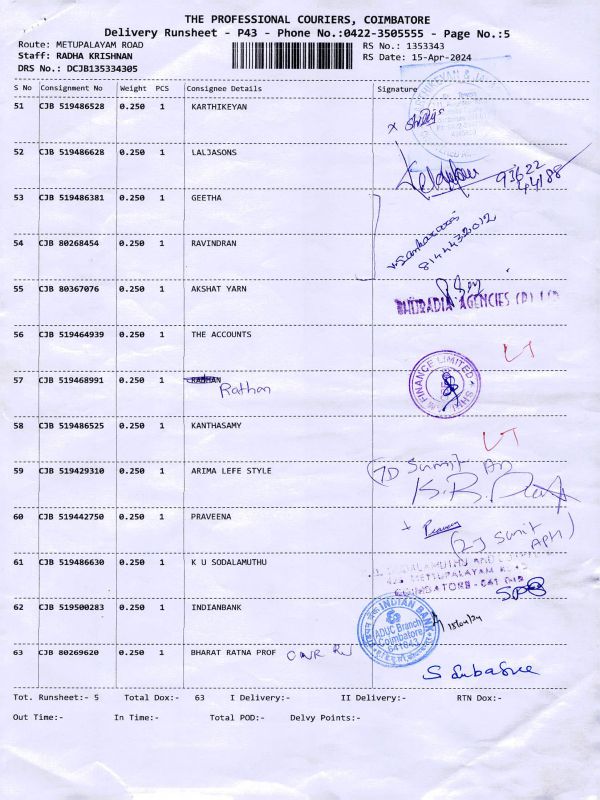 THE PROFESSIONAL COURIERS, COIMBATORE
Delivery Runsheet - P43 - Phone No.:0422-3505555 - Page No.:5
Route: METUPALAYAM ROAD
RS No.: 1353343
Staff: RADHA KRISHNAN
RS Date: 15-Apr-2024
DRS No.: DCJB135334305
S No Consignment No Weight PCS Consignee Details Signature
51 CJB 519486528 0.250 1 KARTHIKEYAN
52 CJB 519486628 0.250 1 LALJASONS
93622
44188
53 CJB 519486381 0.250 1 GEETHA
54 CJB 80268454 0.250 1 RAVINDRAN
8144432012
55 CJB 80367076 0.250 1 AKSHAT YARN
AGENCIES (P) LTD
56 CJB 519464939 0.250 1 THE ACCOUNTS
LT
57 CJB 519468991 0.250 1 RADHAN
Rathan
FINANCE LIMITED
58 CJB 519486525 0.250 1 KANTHASAMY
LT
59 CJB 519429310 0.250 1 ARIMA LEFE STYLE
7D Summit
60 CJB 519442750 0.250 1 PRAVEENA
(2J Sumit
Apt)
61 CJB 519486630 0.250 1 K U SODALAMUTHU
METTUPALAYAM ROAD
COIMBATORE - 641
62 CJB 519500283 0.250 1 INDIANBANK
INDIAN BANK
ADUC Branch
Coimbatore
641043
15/04/24
63 CJB 80269620 0.250 1 BHARAT RATNA PROF
Tot. Runsheet:- 5 Total Dox:- 63 I Delivery:- II Delivery:- RTN Dox:-
Out Time:- In Time:- Total POD:- Delvy Points:-